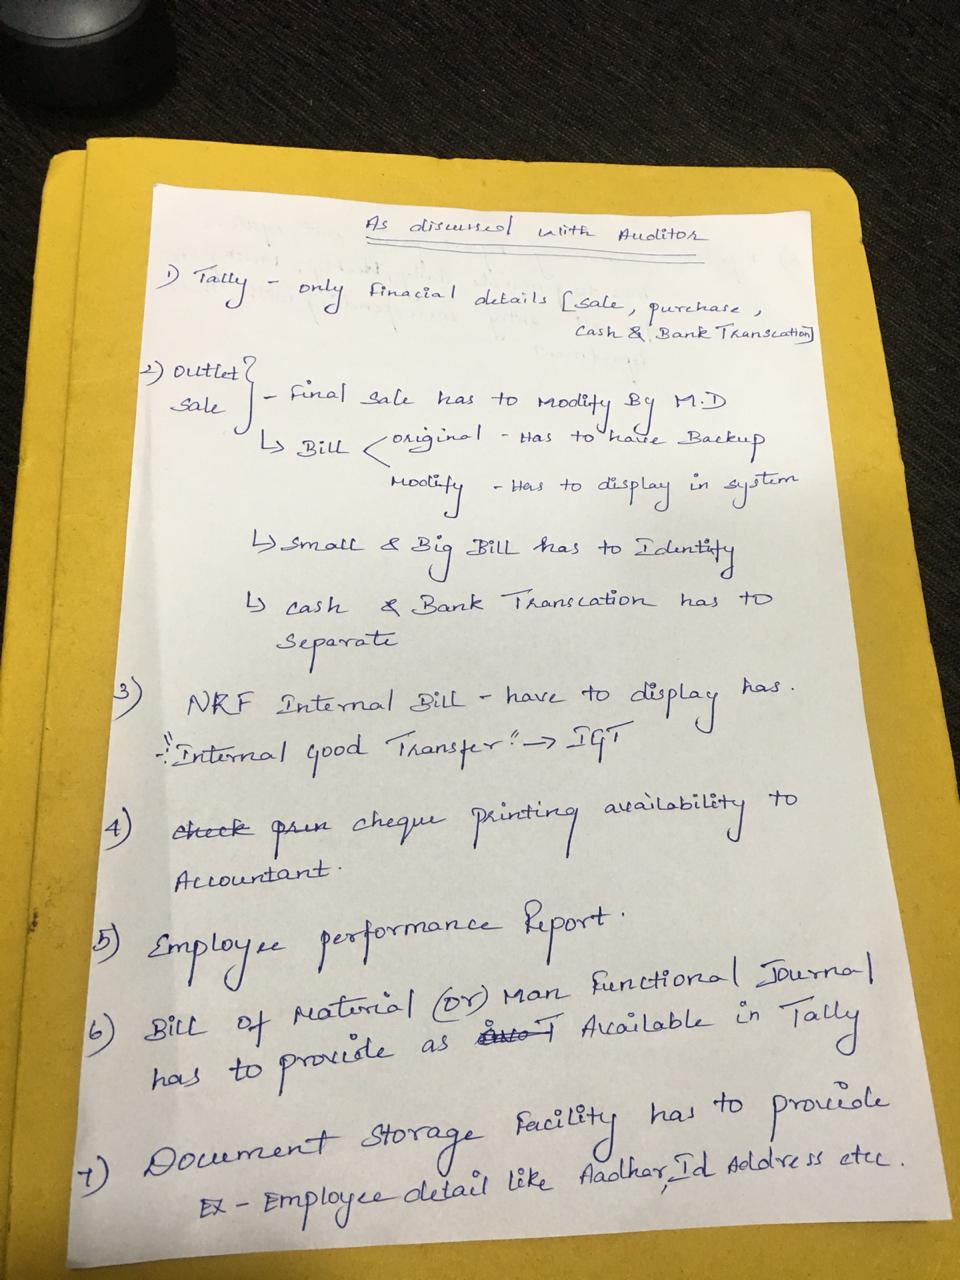 As discussed with Auditor
1) Tally - only Finacial details [Sale, purchase,
Cash & Bank Transcation]
2) outlet } - Final Sale has to Modify By M.D
Sale
↳ Bill < original - Has to have Backup
Modify - Has to display in system
↳ Small & Big Bill has to Identify
↳ cash & Bank Transcation has to
Separate
3) NRF Internal Bill - have to display has.
"Internal Good Transfer" → IGT
4) check prin cheque printing availability to
Accountant.
5) Employee performance Report.
6) Bill of Material (or) Man Functional Journal
has to provide as Available in Tally
7) Document Storage Facility has to provide
Ex - Employee detail like Aadhar, Id Address etc.